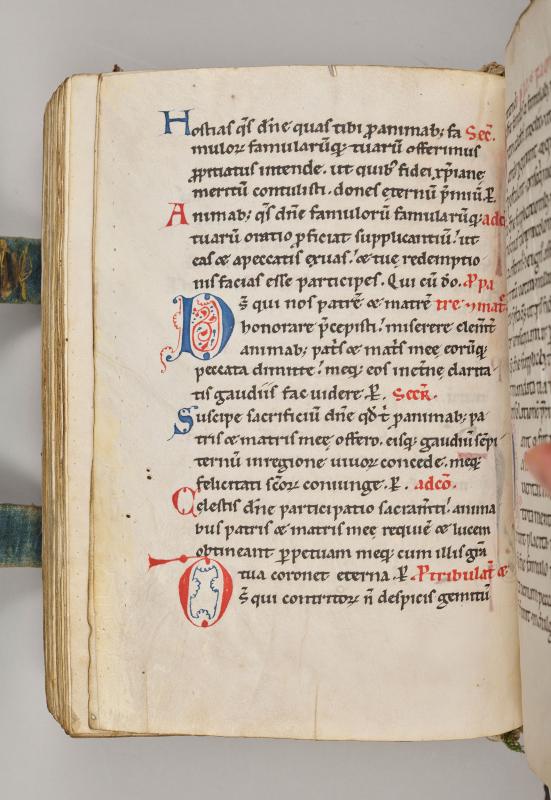 Hostias qs dñe quas tibi ꝓ animab; fa Sec̃.
muloꝝ famularũq; tuarũ offerimus
ꝓpitiatus intende. ut quib᾿ fidei xp̃iane
meritũ contulisti. dones ęternũ p̃miũ. P̲.
Animab; qs dñe famulorũ famularũq; adcõ
tuarũ oratio ꝓficiat supplicantiũ. ut
eas & a peccatis exuas. & tuę redemptio
nis facias esse participes. Qui cũ dõ. P̱ pa
Ds̃ qui nos patrẽ & matrẽ tre ⁊ mat̃
honorare p̃cepisti. miserere clem̃t̃
animab; pat̃s & mat̃s meę eorũq;
peccata dimitte. meq; eos in ęt̃nę clarita
tis gaudiis fac videre. P̲. Secr̃.
Suscipe sacrificiũ dñe qd̃ t̃ ꝓ animab; pa
tris & matris meę offero. eisq; gaudiũ sẽpi
ternũ in regione vivoꝝ concede. meq;
felicitati sc̃oꝝ coniunge. P̲. adcõ.
Celestis dñe participatio sacram̃ti. anima
bus patris & matris meę requiẽ & lucem
obtineant ꝑpetuam meq; cum illis grã
tua coronet eterna. P̲. P̱ tribulat̃ &
Ds̃ qui contritoꝝ ñ despicis gemitũ